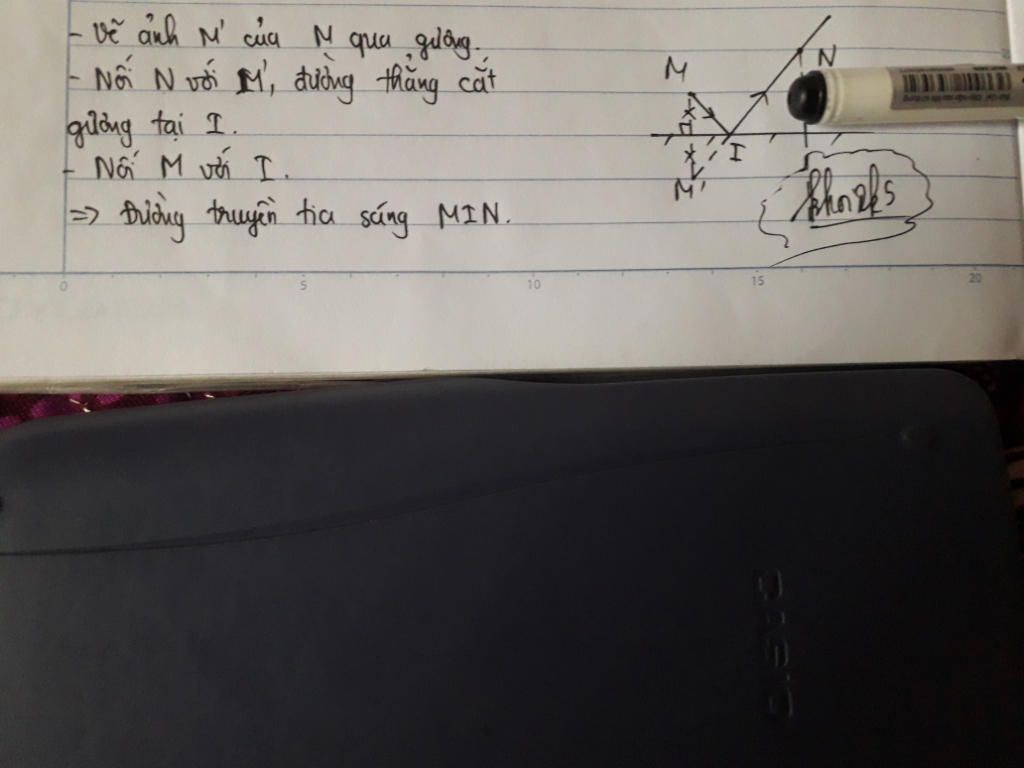 - Vẽ ảnh M' của M qua gương.
- Nối N với M', đường thẳng cắt
gương tại I.
- Nối M với I.
=> Đường truyền tia sáng MIN.
M
N
I
M'
0 5 10 15 20
CASIO